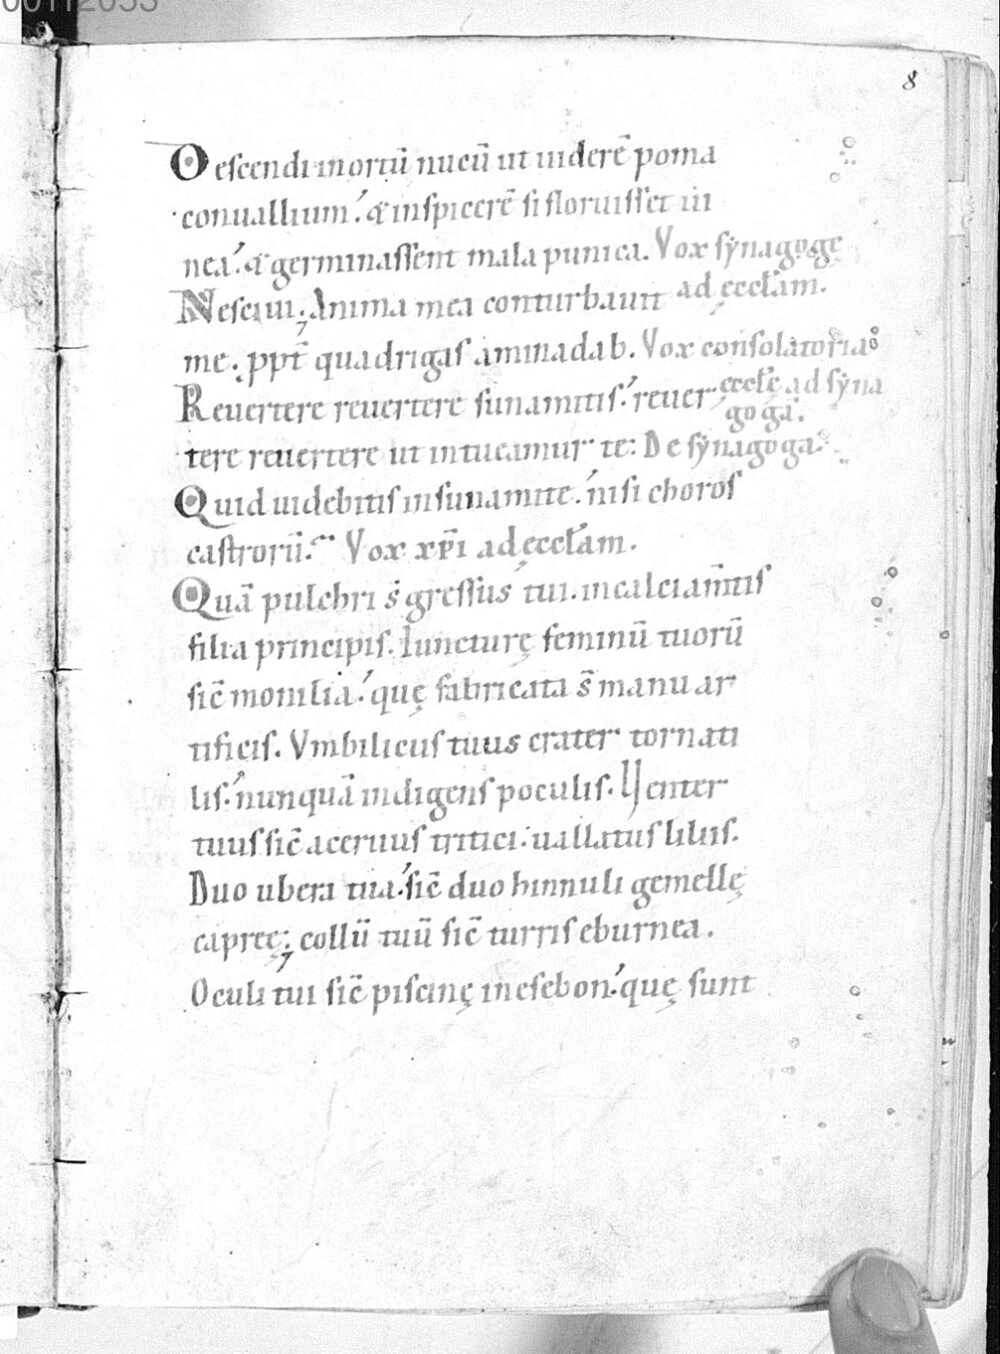 00112033
8
Descendi in ortū nucū ut uiderē poma
conuallium. & inspicerē si floruisset ui
nea. & germinassent mala punica. Vox synagogę
Nesciui; Anima mea conturbauit ad ęccłam.
me. ppt̄ quadrigas aminadab. Vox consolatoria
Reuertere reuertere sunamitis. reuer ęccłę ad syna
goga.
tere reuertere ut intueamur te: De synagoga.
Quid uidebitis in sunamite. nisi choros
castrorū. Vox xp̄i ad ęccłam.
Quā pulchri s̄ gressus tui. in calciam̄tis
filia principis. Iuncturę feminū tuorū
sic̄ monilia. quę fabricata s̄ manu ar
tificis. Vmbilicus tuus crater tornati
lis. nunquā indigens poculis. Uenter
tuus sic̄ aceruus tritici. uallatus liliis.
Duo ubera tua. sic̄ duo hinnuli gemellę
capreę; collū tuū sic̄ turris eburnea.
Oculi tui sic̄ piscinę in esebon. quę sunt